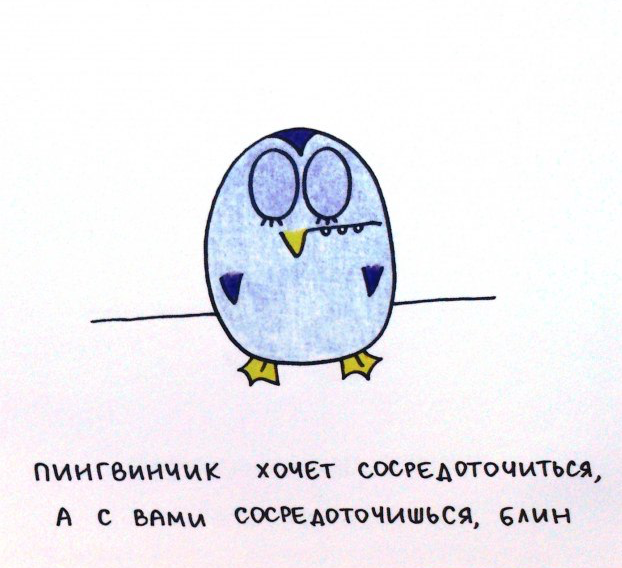 ПИНГВИНЧИК ХОЧЕТ СОСРЕДОТОЧИТЬСЯ,
А С ВАМИ СОСРЕДОТОЧИШЬСЯ, БЛИН